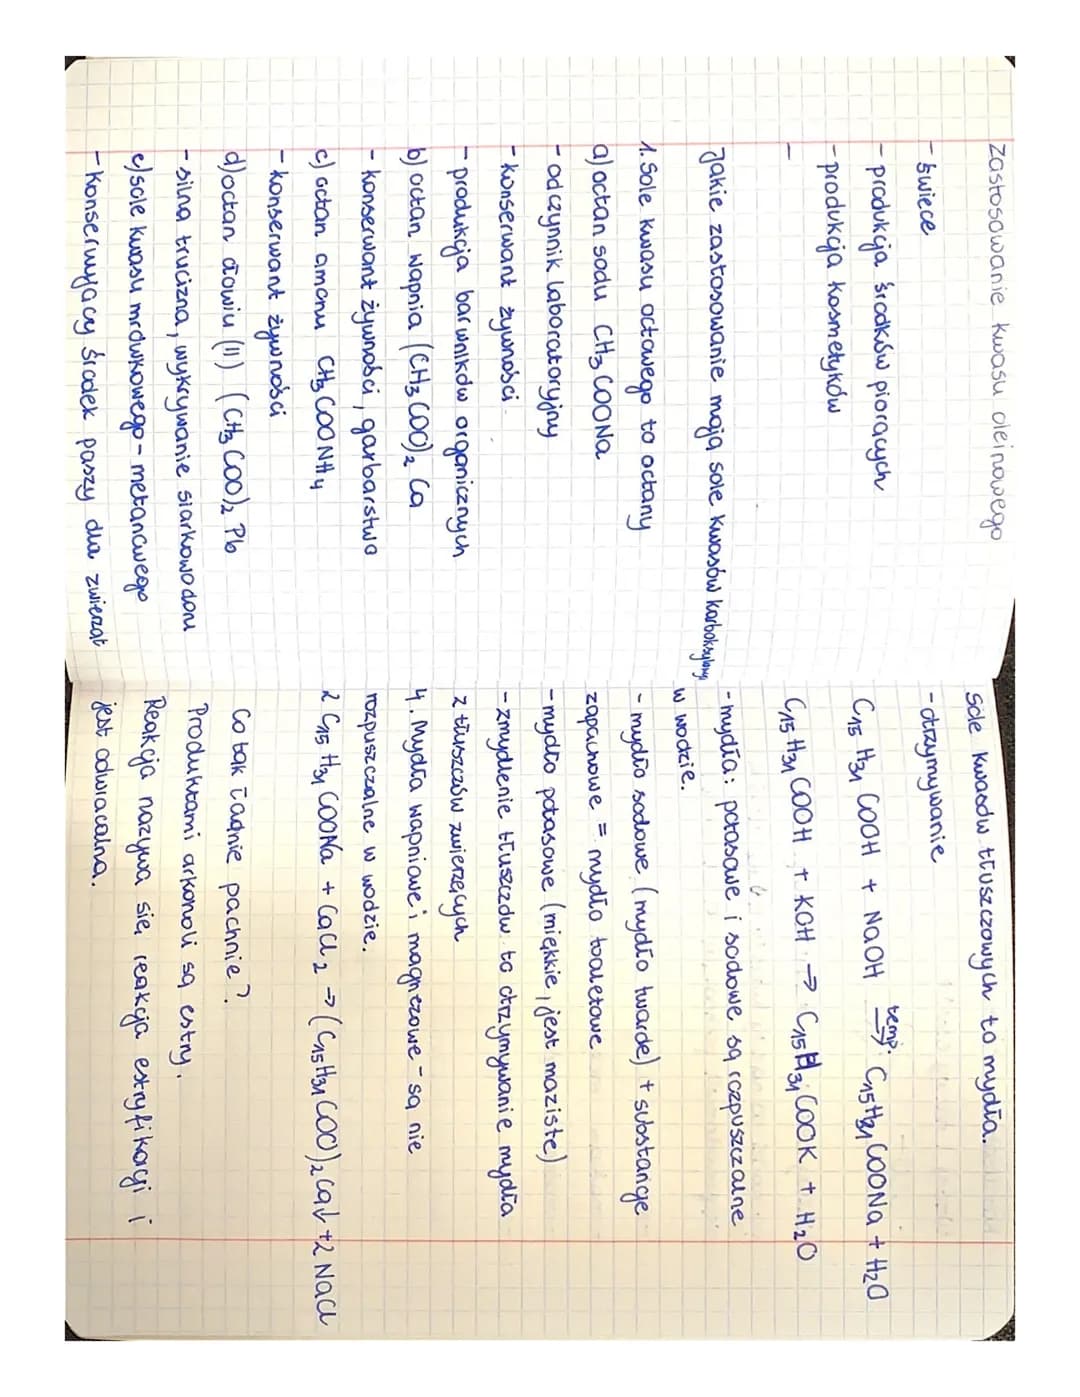 Zastosowanie kwasu oleinowego
- świece
- produkcja środków piorących
- produkcja kosmetyków
-
Jakie zastosowanie mają sole kwasów karboksylowych
1. Sole kwasu octowego to octany
a) octan sodu CH3COONa
- odczynnik laboratoryjny
- konserwant żywności
- produkcja barwników organicznych
b) octan wapnia (CH3COO)2 Ca
- konserwant żywności, garbarstwo
c) octan amonu CH3COONH4
- konserwant żywności
d) octan ołowiu (II) (CH3COO)2 Pb
- silna trucizna, wykrywanie siarkowodoru
e) sole kwasu mrówkowego - metanowego
- Konserwujący środek paszy dla zwierząt
Sole kwasów tłuszczowych to mydła.
- otrzymywanie
C15H31COOH + NaOH temp. → C15H31COONa + H2O
C15H31COOH + KOH → C15H31COOK + H2O
- mydła: potasowe i sodowe są rozpuszczalne
w wodzie.
- mydło sodowe (mydło twarde) + substancje
zapachowe = mydło toaletowe
- mydło potasowe (miękkie, jest maziste)
- zmydlenie tłuszczów to otrzymywanie mydła
z tłuszczów zwierzęcych
4. Mydła wapniowe i magnezowe - są nie
rozpuszczalne w wodzie.
2 C15H31COONa + CaCl2 → (C15H31COO)2Ca↓ + 2 NaCl
Co tak ładnie pachnie?
Produktami arkonoli są estry.
Reakcja nazywa się reakcją estryfikacji i
jest odwracalna.